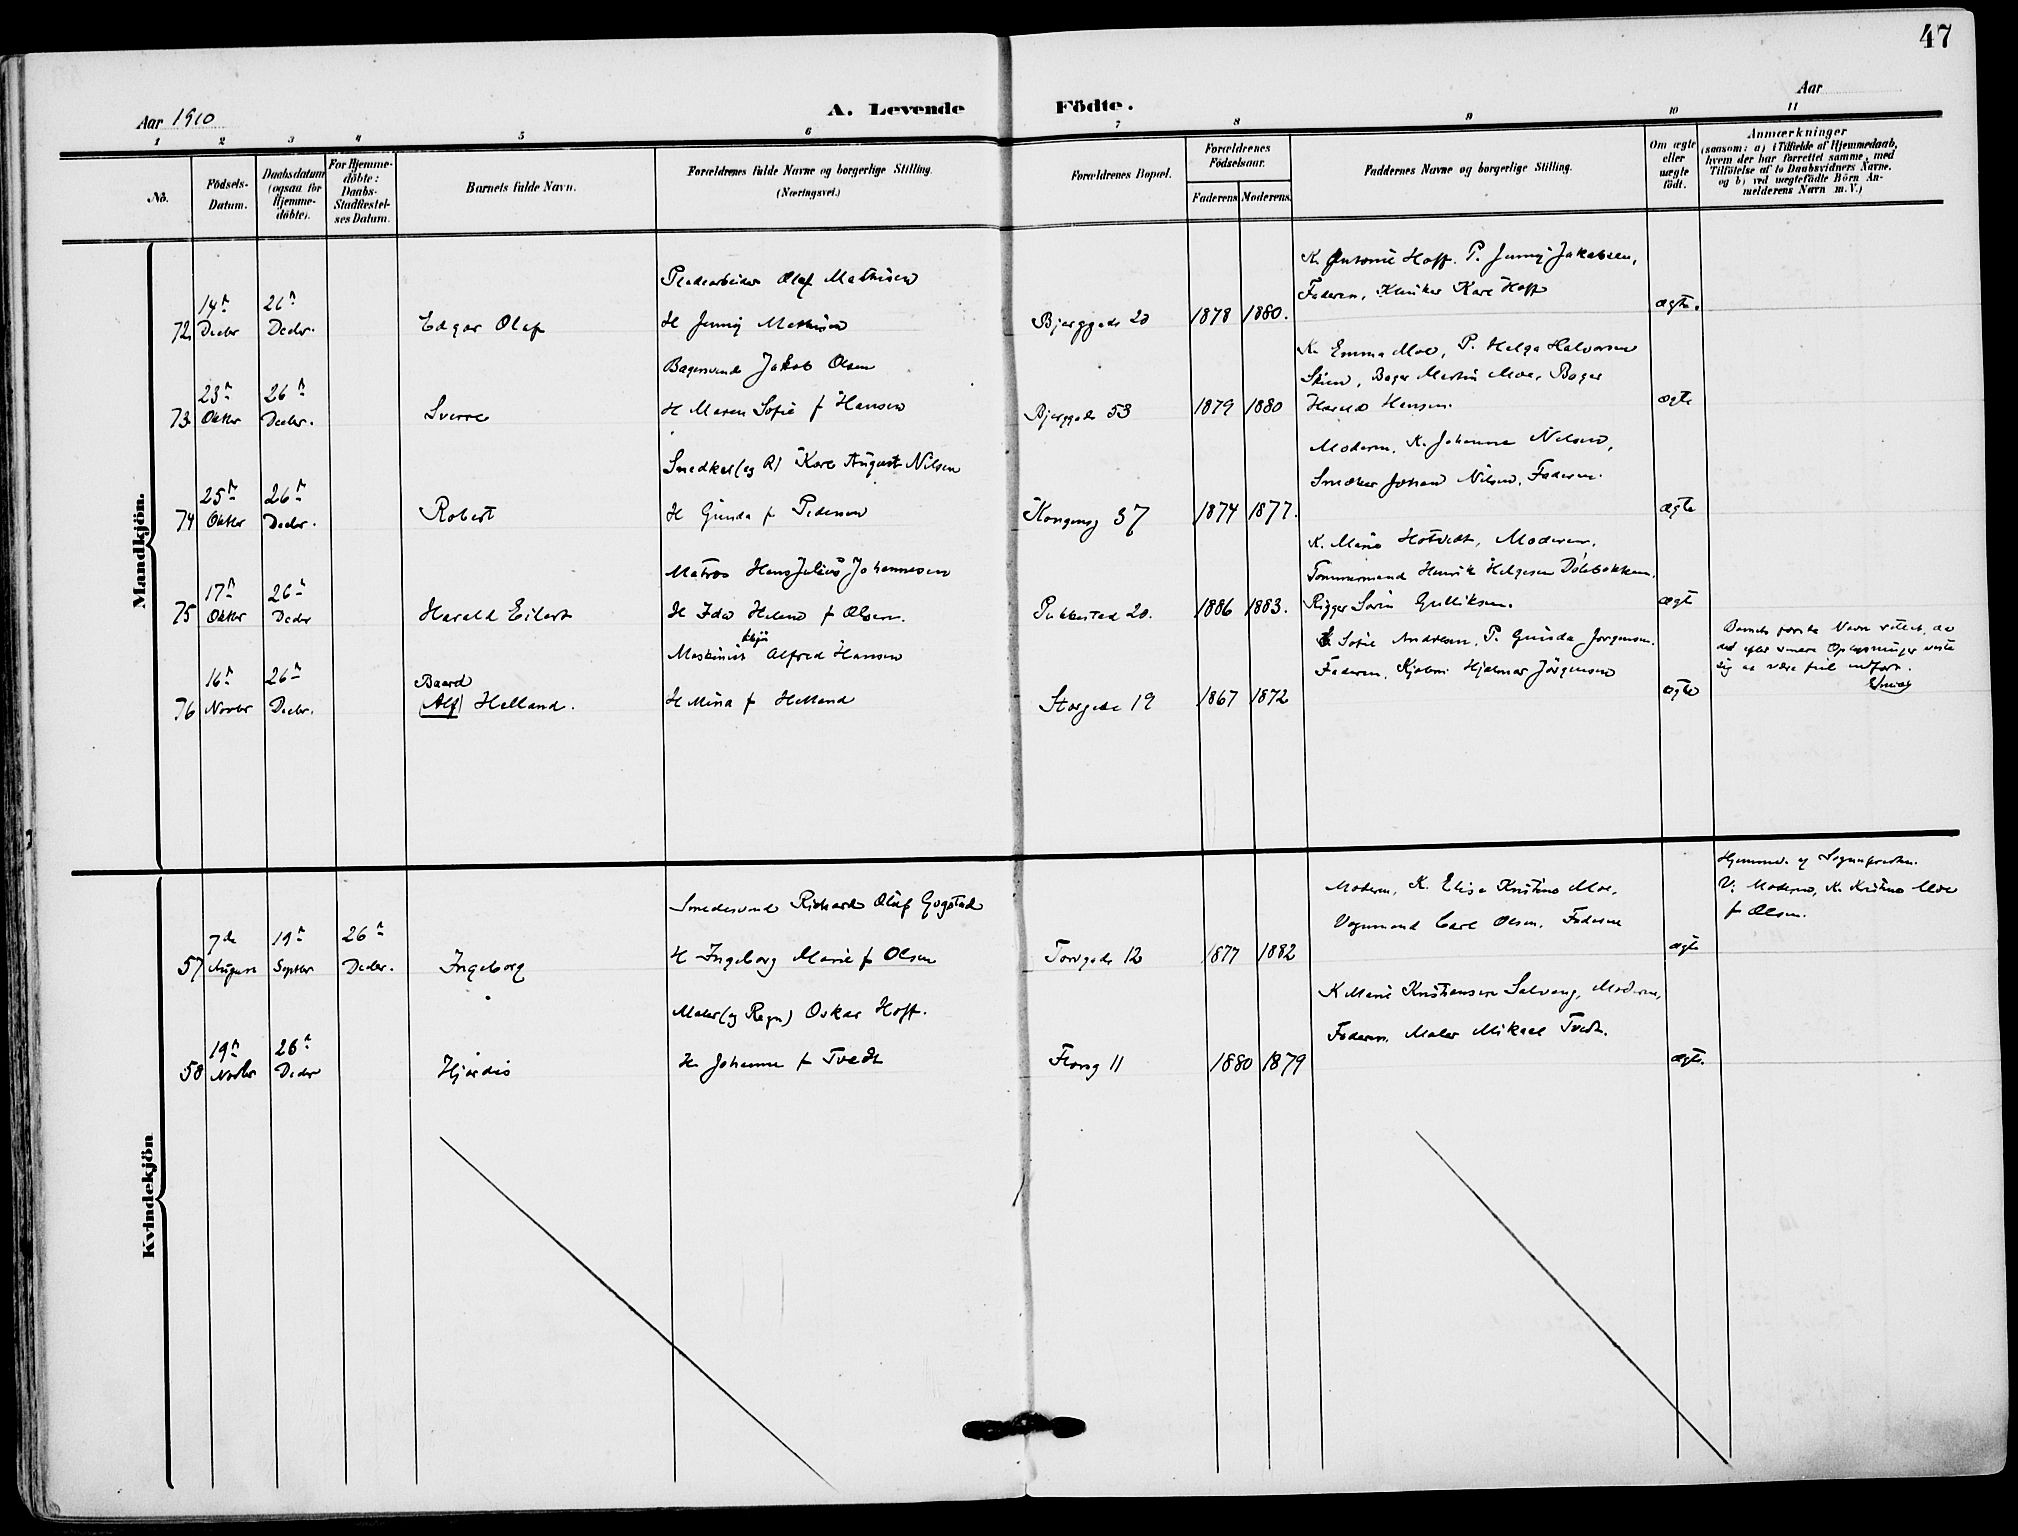 47
Aar 1910
A. Levende Födte.
Aar
1 2 3 4 5 6 7 8 9 10 11
No.
Födsels-
Datum.
Daabsdatum
(ogsaa for
Hjemme-
döbte).
For Hjemme-
döbte:
Daabs-
Stadfæstel-
ses Datum.
Barnets fulde Navn.
Forældrenes fulde Navne og borgerlige Stilling.
(Næringsvei.)
Forældrenes Bopæl.
Forældrenes
Födselsaar.
Faderens Moderens
Faddernes Navne og borgerlige Stilling.
Om ægte
eller
uægte
født.
Anmærkninger
(saasom: a) i Tilfælde af Hjemmedaab,
hvem der har forrettet samme, med
Tilföielse af to Daabsvidners Navne,
og b) ved uægtefödte Börn An-
melderens Navn m. V.)
Mandkjön.
K. Antonie Hoff. P. Jenny Jakobsen,
Olaf Mathisen
Faderen, Karl Hoff
14de 26de
72 Decbr Decbr. Edgar Olaf H Jenny Mathisen Bjerggade 20 1878 1880. ægte.
K. Emma Moe, P. Helga Halvorsen
Bagersvend Jakob Olsen
Skien, Bager Martin Moe, Bager
23de 26de
73 Oktbr Decbr. Sverre H Maren Sofie f Hansen Bjerggade 53 1879 1880 Harald Hansen. ægte
Moderen, K. Johanne Nilsen,
Karl August Nilsen
Johan Nilsen, Faderen.
25de 26de
74 Oktbr Decbr. Robert H Gunda f Pedersen Kongensg 37 1874 1877. ægte
K. Marie Hotvedt, Moderen,
Matros Hans Julius Johannesen
Tømmermand Henrik Helgesen
17de 26de
75 Oktbr Decbr Harald Eilert H Ida Helene f Olsen. Pukkestad 20. 1886 1883. Rigger Sørin Gulliksen. ægte
K Sofie Andersen, P. Gunda Jørgensen.
Barnets første Navn rettet, da
Maskinist Alfred Hansen
det efter senere Oplysninger viste
Faderen, Hjalmar Jørgensen
sig at være feil indført.
16de 26de
Baard
76 Novbr Decbr. (Alf) Helland. H Mina f Helland Storgade 19 1867 1872 ægte
Kvindekjön
Hjemmed. af Sognepresten.
Moderen, K. Elise Kristine Moe,
V: Moderen, K. Kristine Moe
Smedesvend Rickard Olaf Gogstad
Vognmand Carl Olsen, Faderen
f Olsen.
7de 19de 26de
57 August Septbr Decbr. Ingeborg H Ingeborg Marie f Olsen Torvgade 12 1877 1882 ægte
K Marie Kristiansen Solvang, Moderen,
Maler (og Regn) Oskar Hoff.
Faderen, Maler Mikael Tvedt.
19de 26de
58 Novbr Decbr Hjørdis H Johanne f Tvedt 11 1880 1879 ægte.